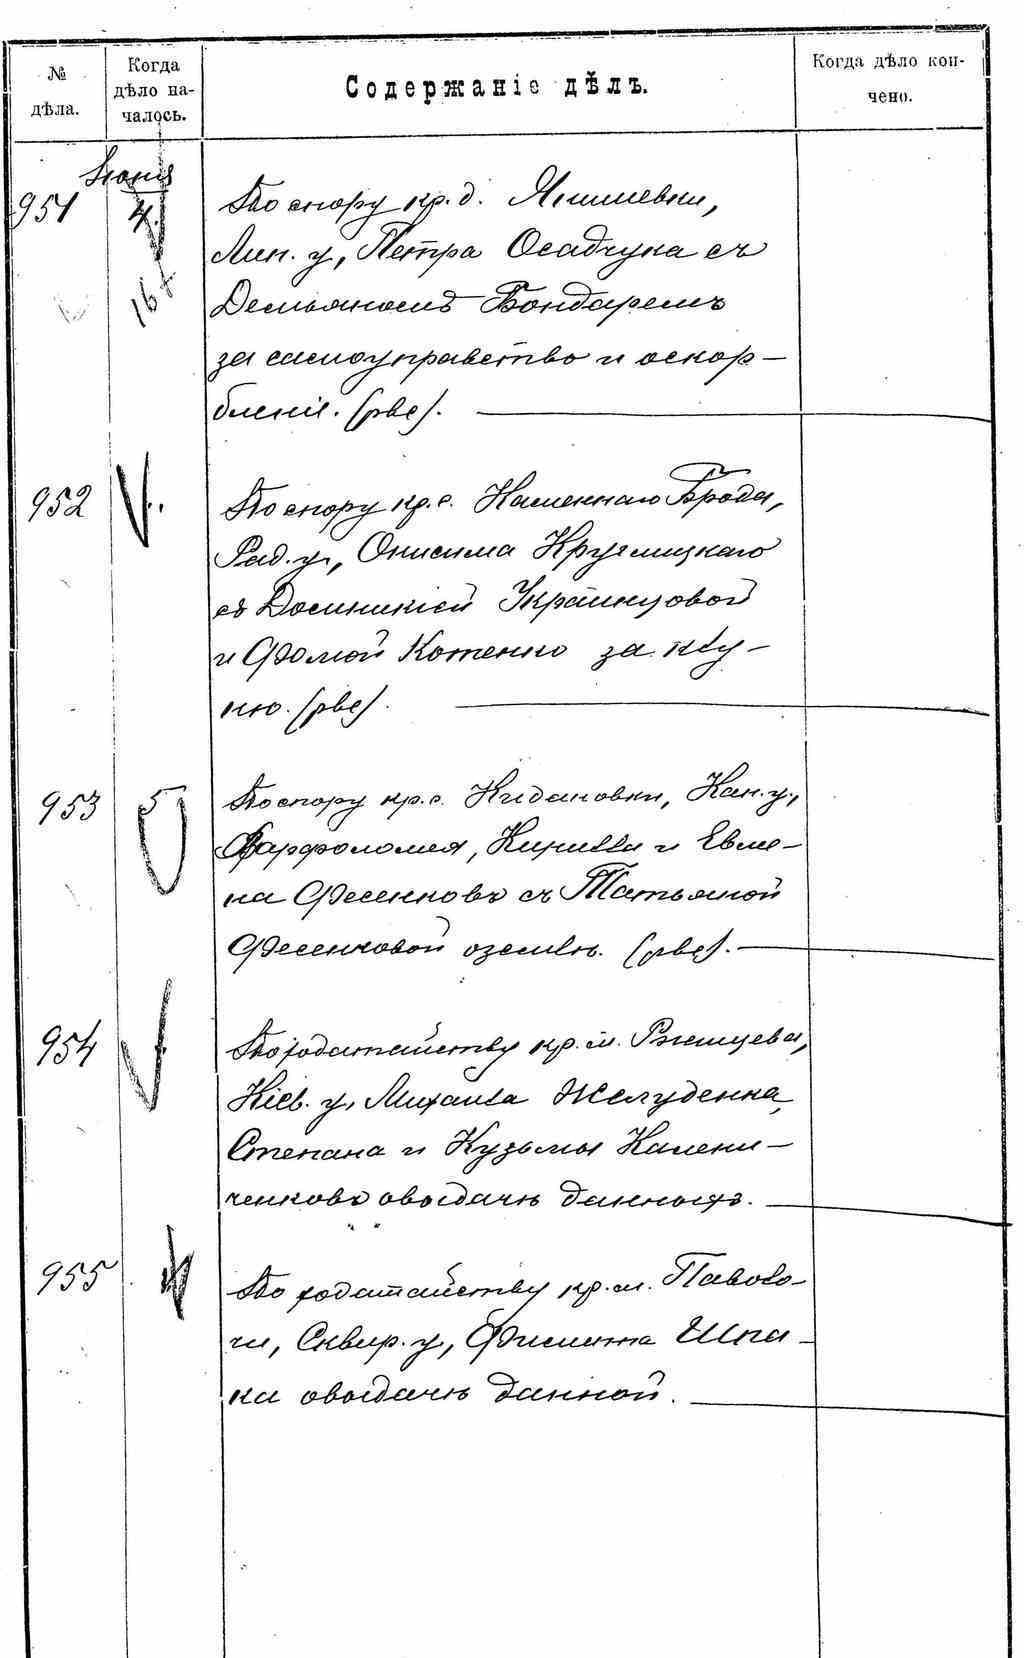 № дѣла.
Когда дѣло на-
чалось.
Содержаніе дѣлъ.
Когда дѣло кон-
чено.
Іюня
951
4.
167
По спору кр. д. Янишевки,
Лип. у, Петра Осадчука съ
Демьяномъ Бондаремъ
за самоуправство и оскор-
бленіе. (рвс).
952
По спору кр. с. Каменнаго Брода,
Рад. у, Онисима Круглицкаго
съ Доминикіей Украинцовой
и Фомой Котенко за клу-
ню. (рвс).
953
5
По спору кр. с. Кидановки, Кан. у.,
Варфоломея, Кирилла и Евме-
на Фесенковъ съ Татьяной
Фесенковой о землѣ. (рвс).
954
По ходатайству кр. м. Ржищева,
Кіев. у, Михаила Желуденка,
Степана и Кузьмы Калени-
ченковъ о выдачѣ данностъ.
955
По ходатайству кр. м. Паволо-
чи, Сквир. у, Филиппа Шпа-
ка о выдачѣ данной.